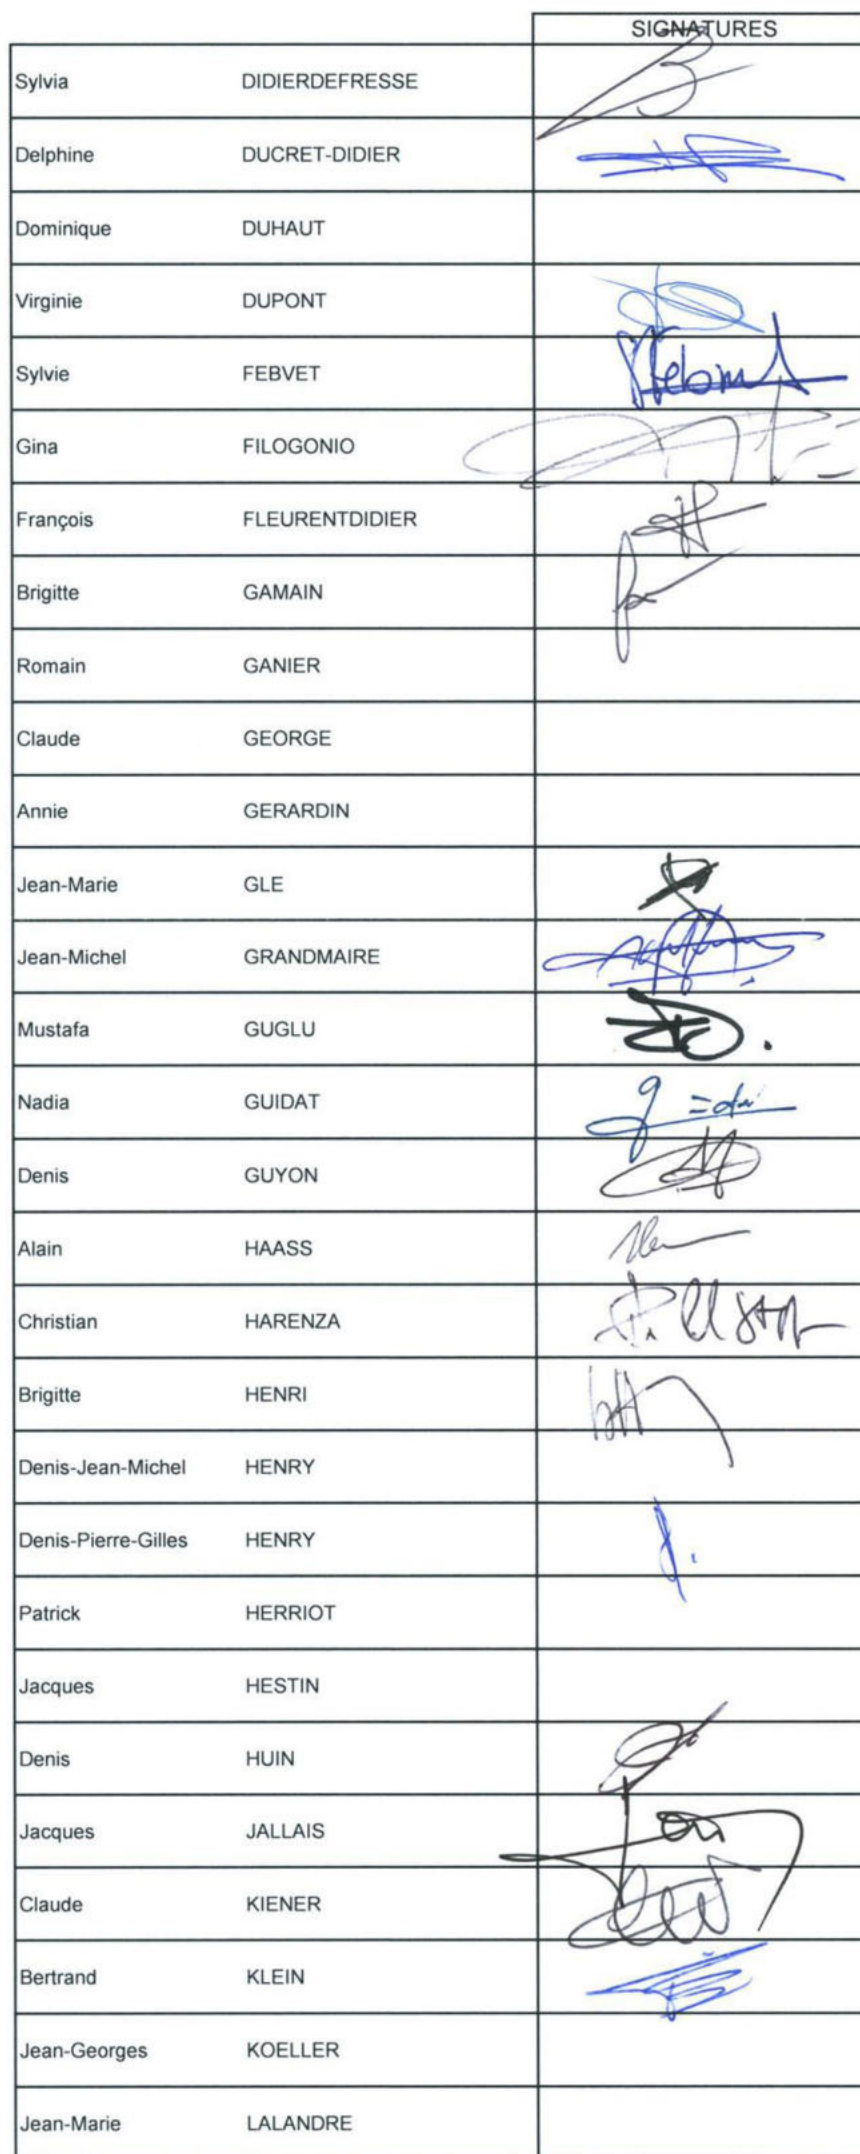 SIGNATURES
Sylvia DIDIERDEFRESSE
Delphine DUCRET-DIDIER
Dominique DUHAUT
Virginie DUPONT
Sylvie FEBVET
Gina FILOGONIO
François FLEURENTDIDIER
Brigitte GAMAIN
Romain GANIER
Claude GEORGE
Annie GERARDIN
Jean-Marie GLE
Jean-Michel GRANDMAIRE
Mustafa GUGLU
Nadia GUIDAT
Denis GUYON
Alain HAASS
Christian HARENZA
Brigitte HENRI
Denis-Jean-Michel HENRY
Denis-Pierre-Gilles HENRY
Patrick HERRIOT
Jacques HESTIN
Denis HUIN
Jacques JALLAIS
Claude KIENER
Bertrand KLEIN
Jean-Georges KOELLER
Jean-Marie LALANDRE